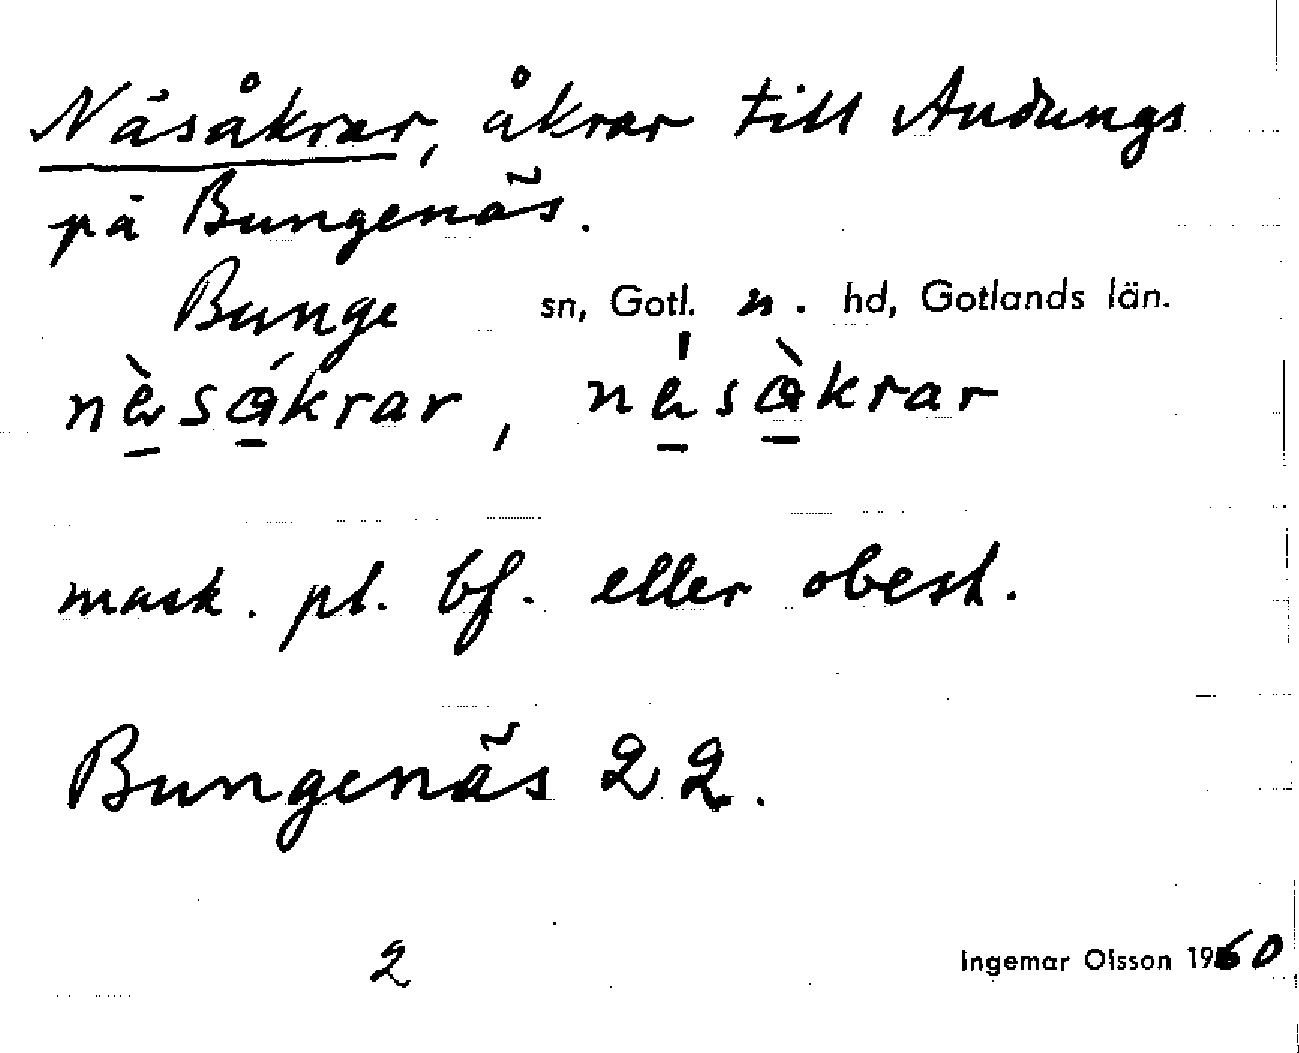 Näsåkrar, åkrar till Audungs
på Bungenäs.
Bunge sn, Gotl. n. hd, Gotlands län.
nǜsåkrar, nä́såkrar
mask. pl. bf. eller obest.
Bungenäs 22.
2 Ingemar Olsson 1960